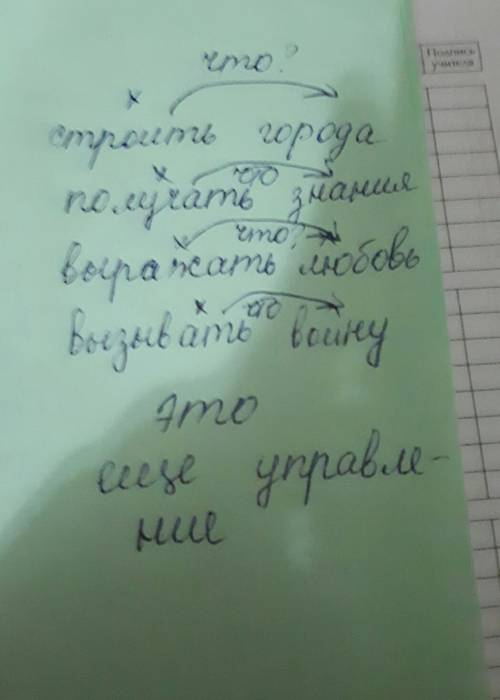 что?
х
строить города
х что
получать знания
х что?
выражать любовь
х что
вызывать войну
это
еще управле-
ние
Подпись
учителя